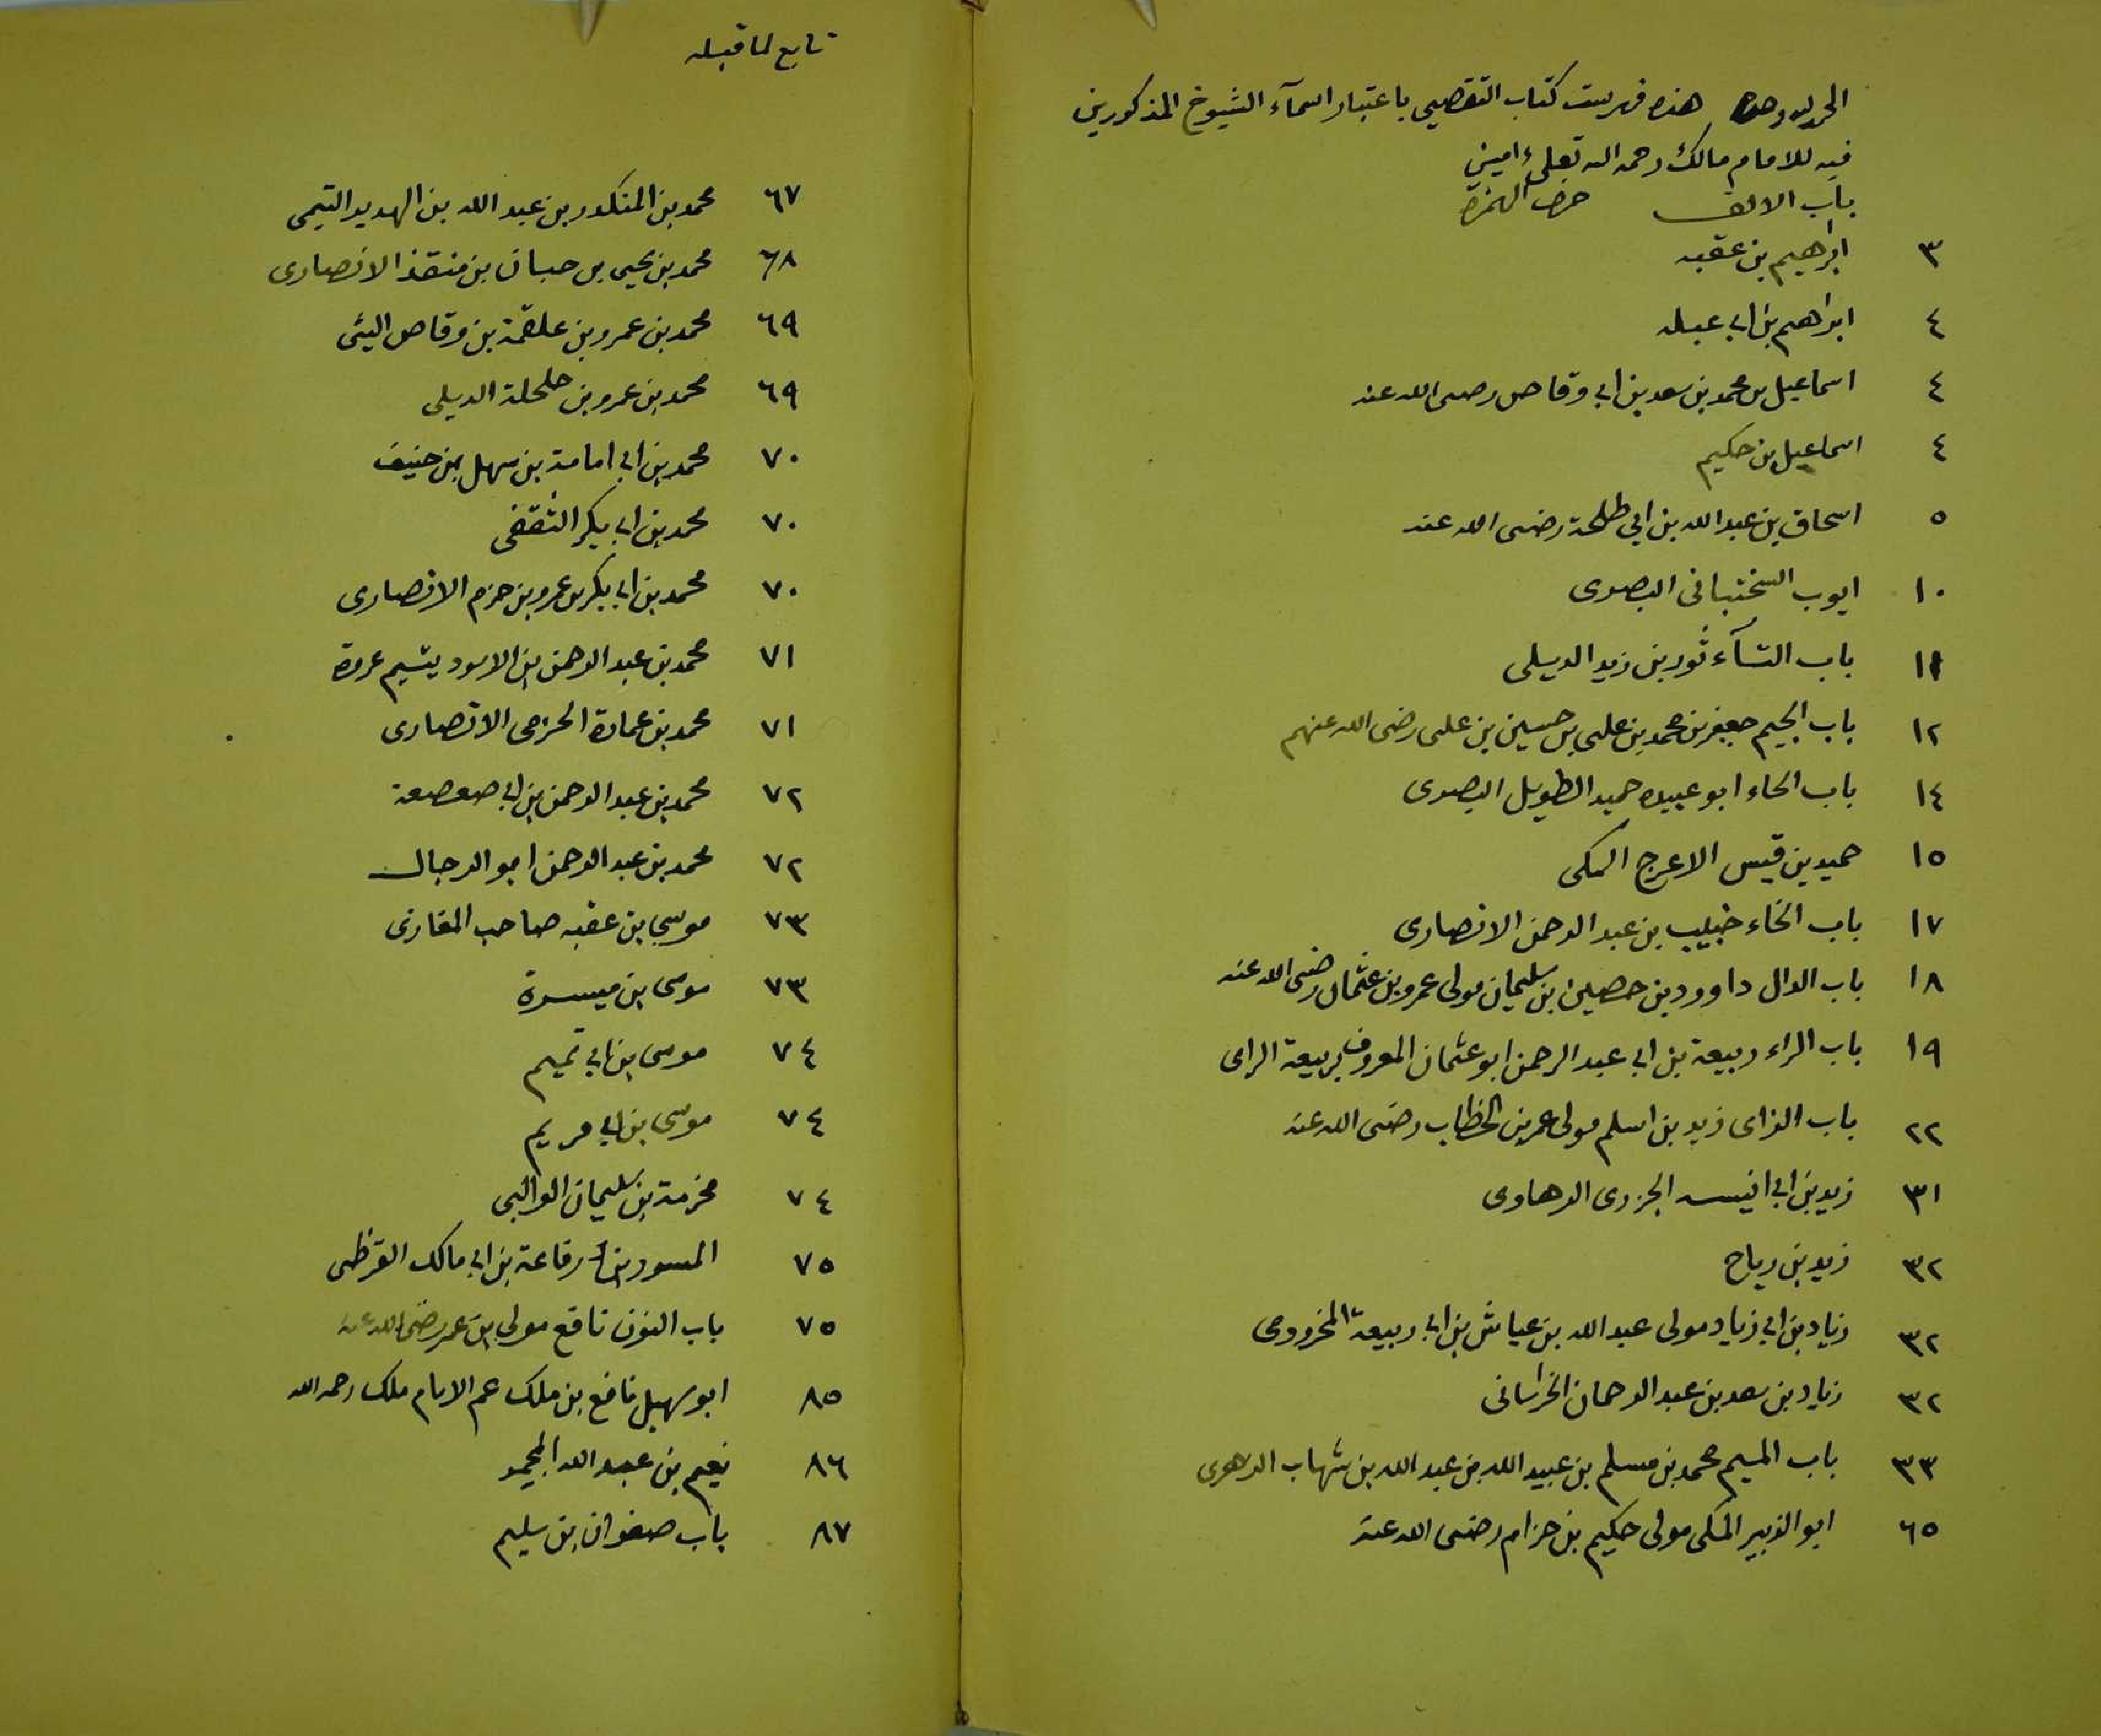 الحمد لله وحده هذه فهرست كتاب التقصي باعتبار اسمآء الشيوخ المذكورين
فيه للامام مالك رحمه الله تعلى ءامين
باب الالف حرف الهمزة
٣ ابرٰهيم بن عقبه
٤ ابرٰهيم بن ابي عبله
٤ اسماعيل بن محمد بن سعد بن ابي وقاص رضى الله عنه
٤ اسماعيل بن حكيم
٥ اسحاق بن عبد الله بن ابي طلحة رضى الله عنه
١٠ ايوب السختيانى البصرى
١١ باب الثآء ثور بن زيد الديلى
١٢ باب الجيم جعفر بن محمد بن على بن حسين بن على رضى الله عنهم
١٤ باب الحاء ابو عبيده حميد الطويل البصرى
١٥ حميد بن قيس الاعرج المكى
١٧ باب الخاء خبيب بن عبد الرحمن الانصارى
١٨ باب الدال داوود بن حصين بن سليمان مولى عمرو بن عثمان رضى الله عنه
١٩ باب الراء ربيعة بن ابي عبد الرحمن ابو عثمان المعروف بربيعة الراى
٢٢ باب الزاى زيد بن اسلم مولى عمر بن الخطاب رضى الله عنه
٣١ زيد بن ابي انيسه الجزرى الرهاوى
٣٢ زيد بن رباح
٣٢ زياد بن ابي زياد مولى عبد الله بن عياش بن ابي ربيعة المخزومى
٣٢ زياد بن سعد بن عبد الرحمان الخراسانى
٣٣ باب الميم محمد بن مسلم بن عبيد الله بن عبد الله بن شهاب الزهرى
٦٥ ابو الزبير المكى مولى حكيم بن حزام رضى الله عنه
تابع لما قبله
٦٧ محمد بن المنكدر بن عبد الله بن الهدير التيمى
٦٨ محمد بن يحيى بن حبان بن منقذ الانصارى
٦٩ محمد بن عمرو بن علقمة بن وقاص الليثى
٦٩ محمد بن عمرو بن حلحلة الديلى
٧٠ محمد بن ابي امامة بن سهل بن حنيف
٧٠ محمد بن ابي بكر الثقفى
٧٠ محمد بن ابي بكر بن عمرو بن حزم الانصارى
٧١ محمد بن عبد الرحمن بن الاسود يتيم عروة
٧١ محمد بن عمارة الحزمى الانصارى
٧٢ محمد بن عبد الرحمن بن ابي صعصعة
٧٢ محمد بن عبد الرحمن ابو الرجال
٧٣ موسى بن عقبه صاحب المغازى
٧٣ موسى بن ميسرة
٧٤ موسى بن ابي تميم
٧٤ موسى بن ابي مريم
٧٤ مخرمة بن سليمان الوالبى
٧٥ المسور بن رفاعة بن ابي مالك القرظى
٧٥ باب النون نافع مولى ابن عمر رضى الله عنه
٨٥ ابو سهيل نافع بن ملك عم الامام ملك رحمه الله
٨٦ نعيم بن عبد الله المجمر
٨٧ باب صفوان بن سليم